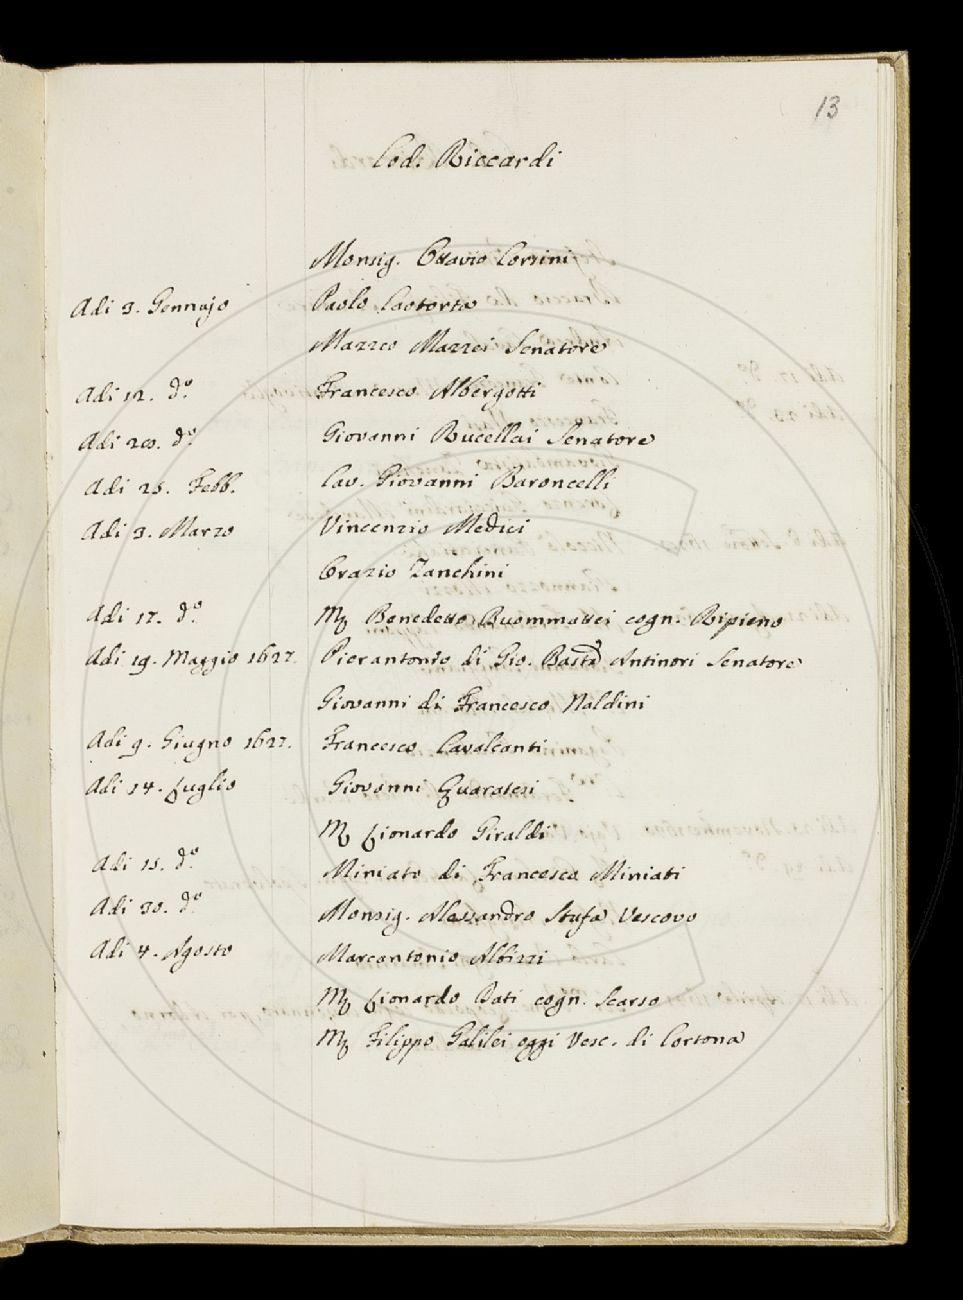 13
Cod. Riccardi
Monsig. Ottavio Corsini
Adi 3. Gennajo Paolo Caotorta
Mazzeo Mazzei Senatore
Adi 12. do. Francesco Albergotti
Adi 20. do. Giovanni Rucellai Senatore
Adi 28. Febb. Cav. Giovanni Baroncelli
Adi 3. Marzo Vincenzio Medici
Orazio Zanchini
Adi 17. do. Mr Benedetto Buommattei cogn. Ripieno
Adi 19. Maggio 1627. Pierantonio di Gio. Batta Antinori Senatore
Giovanni di Francesco Naldini
Adi 9. Giugno 1627. Francesco Cavalcanti
Adi 14. Luglio Giovanni Quaratesi
Mr Lionardo Giraldi
Adi 15. do. Miniato di Francesco Miniati
Adi 30. do. Monsig. Alessandro Stufa Vescovo
Adi 4. Agosto Marcantonio Albizzi
Mr Lionardo Dati cogn. Scarso
Mr Filippo Galilei oggi Vesc. di Cortona